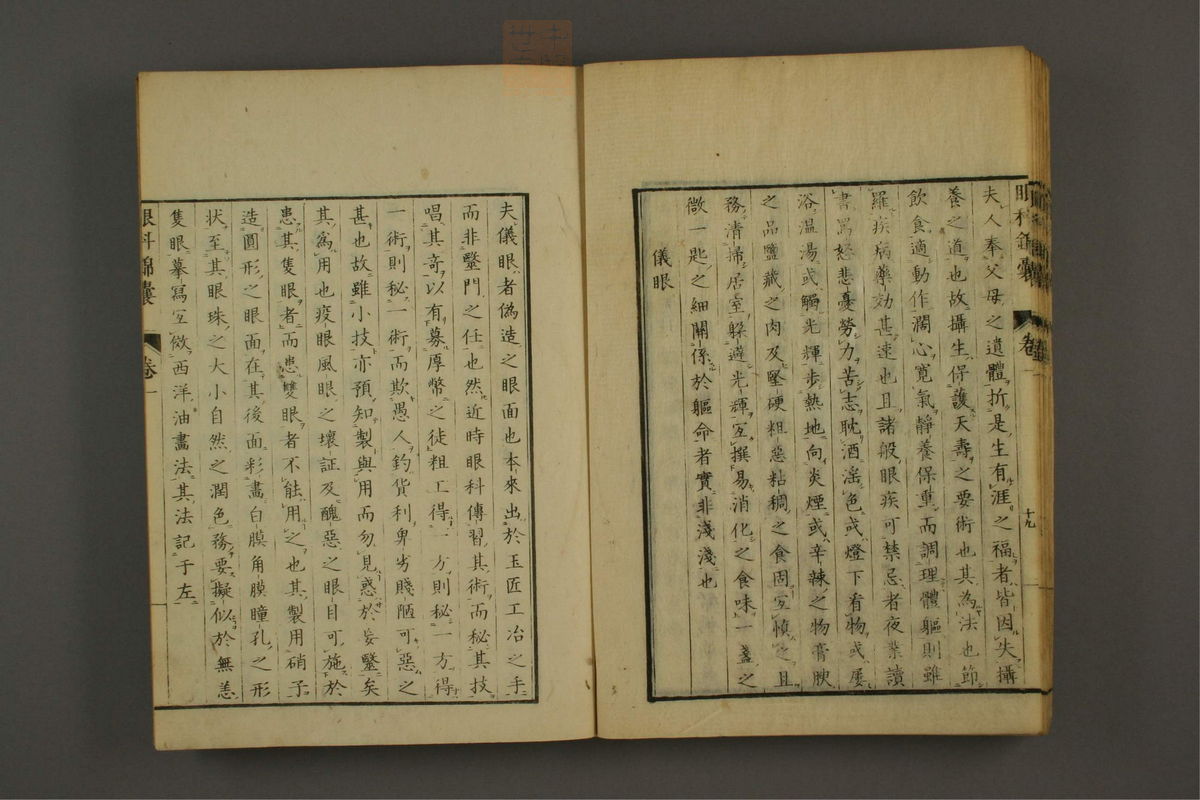 夫人奉父母之遺體折是生有涯之福者皆因失攝
養之道也故攝生保護夭壽之要術也其為法也節
飲食適動作濶心寬氣靜養保重而調理體軀則雖
羅疾病藥効甚速也且諸般眼疾可禁忌者夜業讀
書罵怒悲憂勞力苦志耽酒滛色或燈下看物或屡
浴溫湯或觸光輝步熱地向炎煙或辛辣之物膏腴
之品鹽藏之肉及堅硬粗惡粘稠之食固宜慎之且
務清掃居室躲避光輝宜撰易消化之食味一盞之
微一匙之細關係於軀命者實非淺淺也
儀眼
眼科錦囊
卷一
十九
夫儀眼者偽造之眼面也本來出於玉匠工冶之手
而非毉門之任也然近時眼科傳習其術而秘其技
唱其奇以有募厚幣之徒粗工得一方則秘一方得
一術則秘一術而欺愚人釣貨利卑劣賤陋可惡之
甚也故雖小技亦預知製與用而勿見惑於妄毉矣
其為用也疫眼風眼之壞証及醜惡之眼目可施於
患其隻眼者而患雙眼者不能用之也其製用硝子
造圓形之眼面在其後面彩畵白膜角膜瞳孔之形
狀至其眼珠之大小自然之潤色務要擬似於無恙
隻眼摹寫宜倣西洋油畵法其法記于左
眼科錦囊
卷一